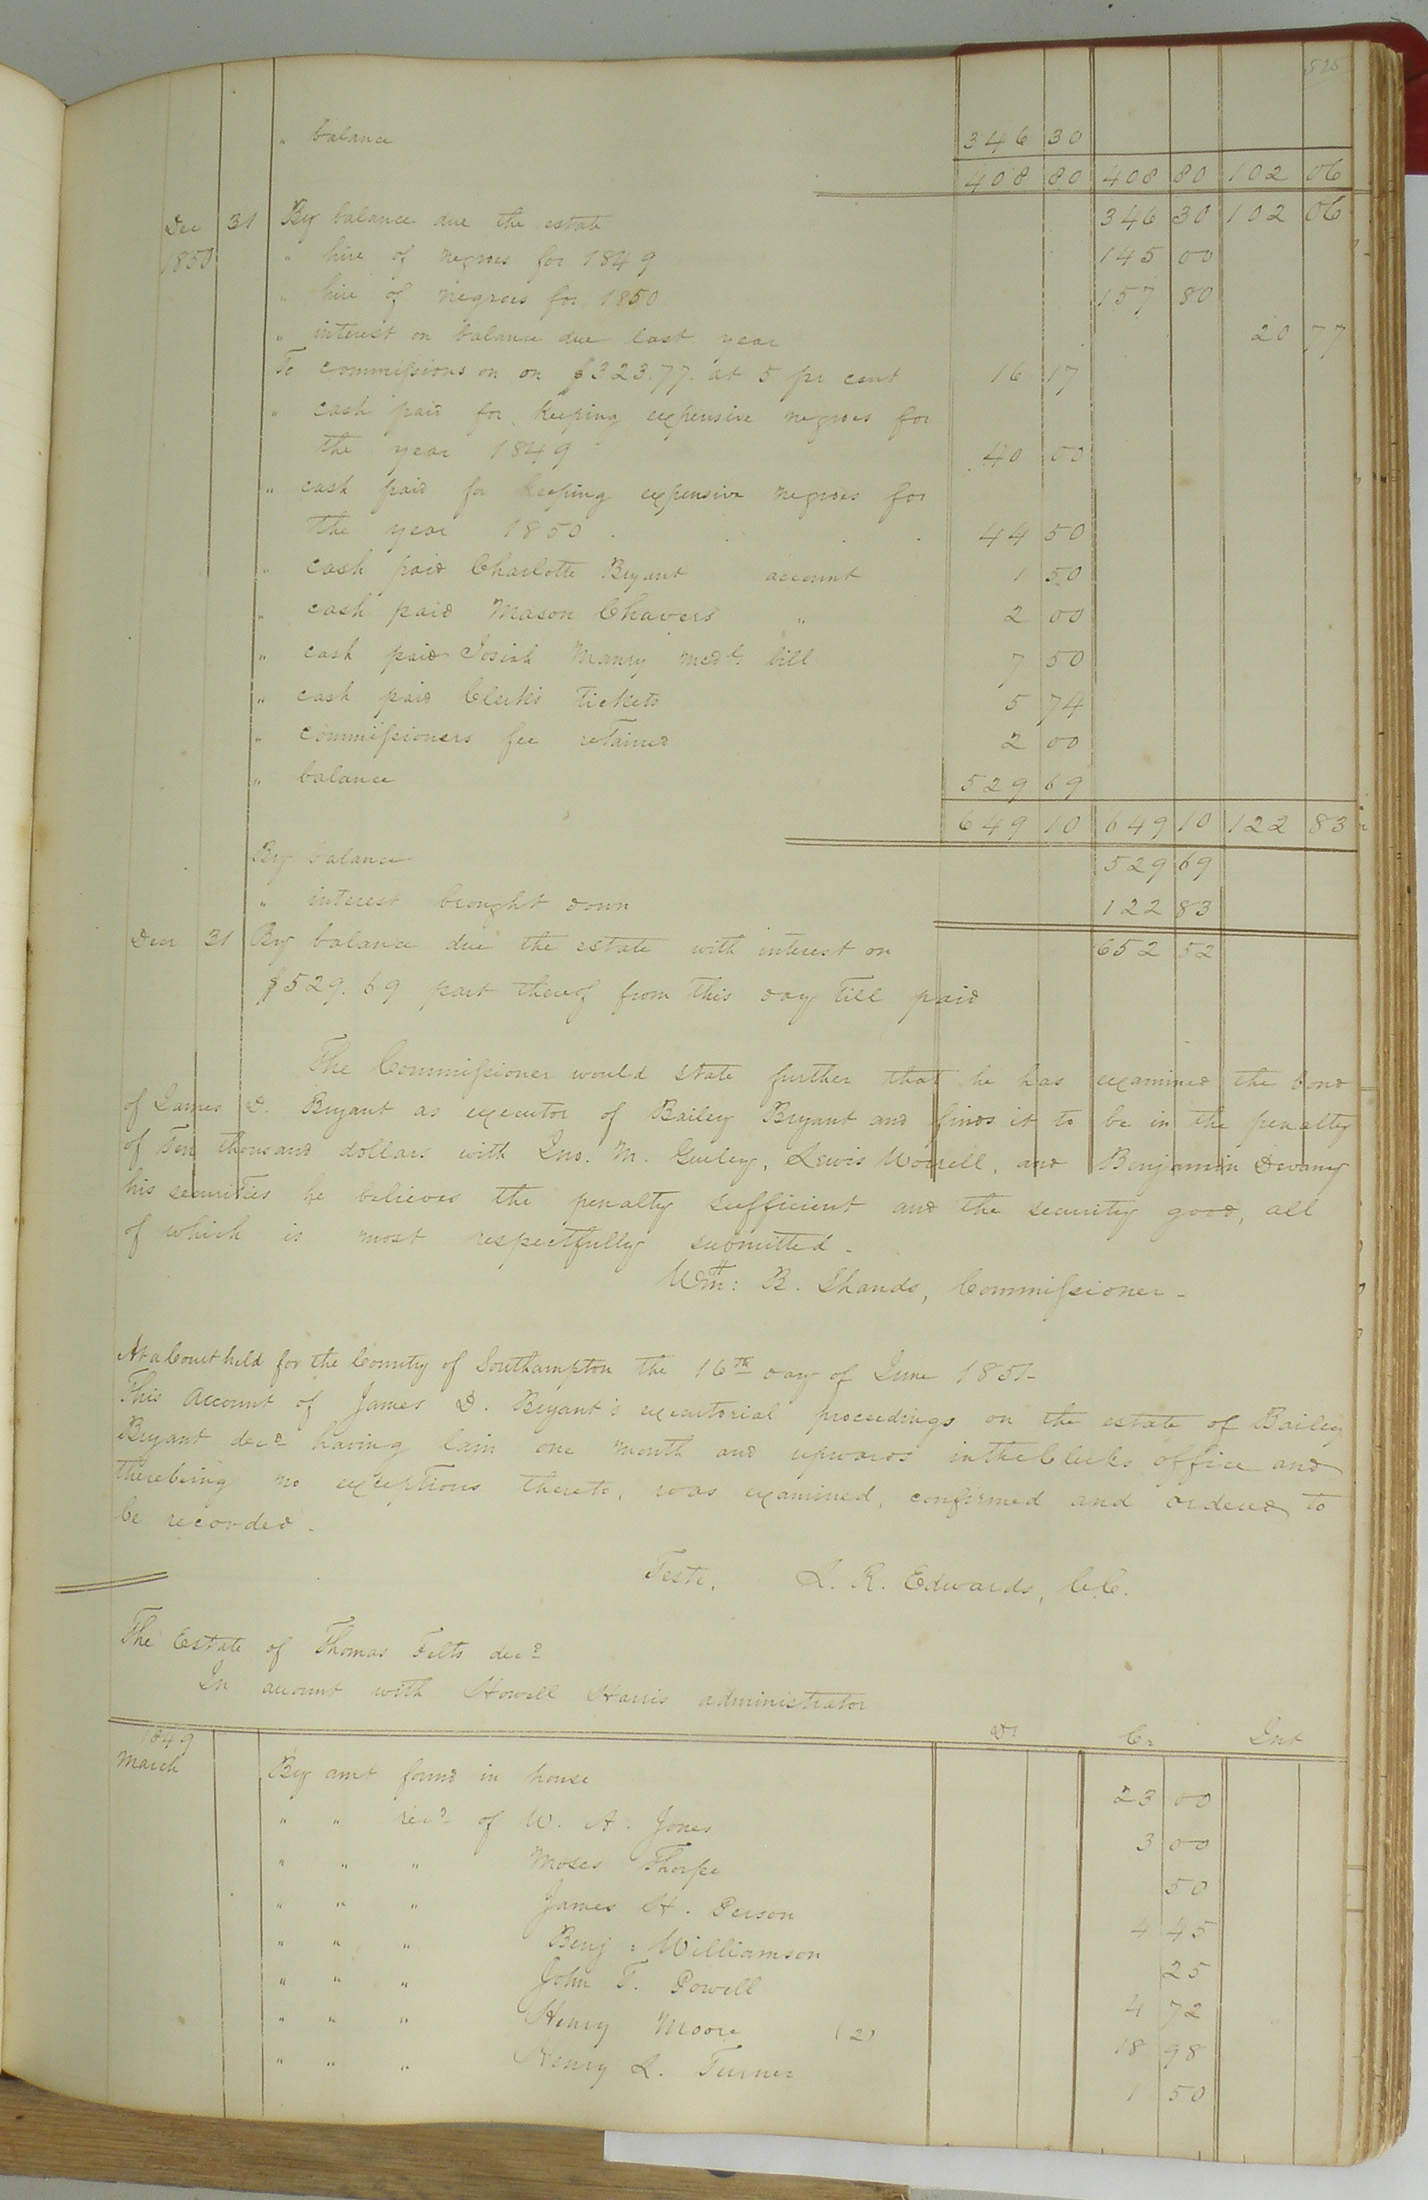 " balance 346 30
408 80 408 80 102 06
Dec 31 By balance due the estate 346 30 102 06
1850 " hire of negroes for 1849 145 00
" hire of negroes for 1850 157 80
" interest on balance due last year 20 77
To commissions on on $323.77. at 5 pr cent 16 17
" cash paid for keeping expensive negroes for
the year 1849 40 00
" cash paid for keeping expensive negroes for
the year 1850 . . . . 44 50
" cash paid Charlotte Bryant account 1 50
" cash paid Mason Chavers " 2 00
" cash paid Josiah Manry medl. bill 7 50
" cash paid Clerks Tickets 5 74
" commissioners fee retained 2 00
" balance 529 69
649 10 649 10 122 83
By balance 529 69
" interest brought down 122 83
Decr 31 By balance due the estate with interest on 652 52
$529.69 part thereof from this day till paid
The Commissioner would state further that he has examined the bond
of James D. Bryant as executor of Bailey Bryant and finds it to be in the penalty
of Ten thousand dollars with Jno. M. Gurley, Lewis Worrell, and Benjamin Devany
his securities he believes the penalty sufficient and the security good, all
of which is most respectfully submitted.
Wm: B. Shands, Commissioner -
At a Court held for the County of Southampton the 16th day of June 1851-
This Account of James D. Bryant's executorial proceedings on the estate of Bailey
Bryant decd having lain one month and upwards in the Clerks office and
there being no exceptions thereto, was examined, confirmed and ordered to
be recorded.
Teste, L. R. Edwards, C.C.
The Estate of Thomas Felts decd
In account with Howell Harris administrator
1849 Dr Cr Int
March By amt found in house 23 00
" " recd of W. A. Jones 3 00
" " " Moses Thorpe 50
" " " James H. Person 4 45
" " " Benj: Williamson 25
" " " John T. Powell 4 72
" " " Henry Moore (2) 18 98
" " " Henry L. Turner 1 50